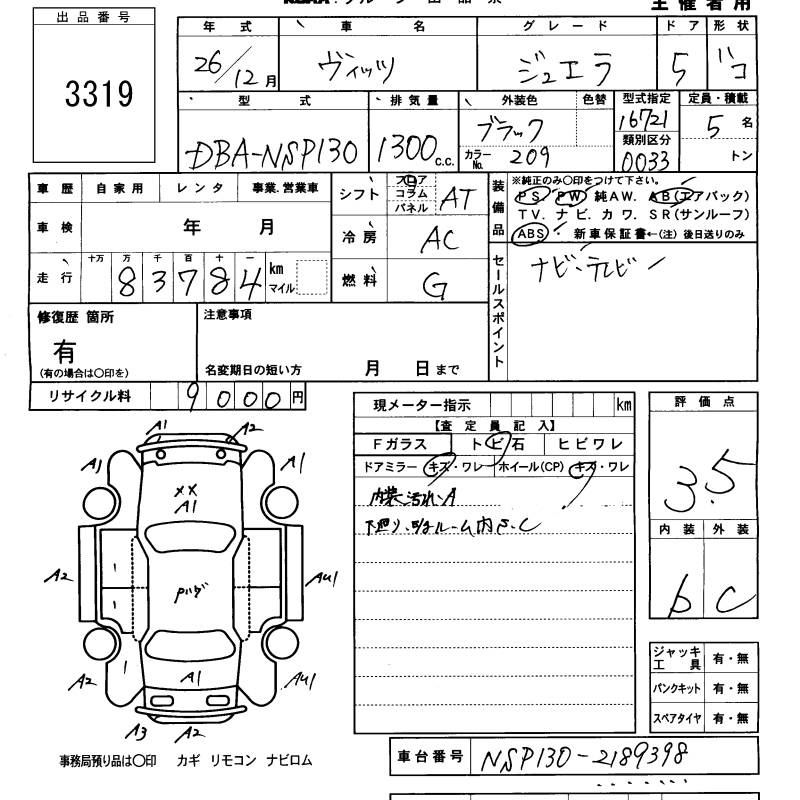 出品番号
3319
主催者用
年式 車名 グレード ドア 形状
26/12月 ヴィッツ ジュエラ 5
型式 排気量 外装色 色替 型式指定 定員・積載
DBA-NSP130 1300c.c. ブラック 16721 5名
カラーNo. 209 類別区分 0033 トン
車歴 自家用 レンタ 事業.営業車
車検 年 月
走行 十万 万 千 百 十 一
83784 km マイル
シフト フロア コラム パネル AT
冷房 AC
燃料 G
装備品
※純正のみ○印をつけて下さい。
PS. PW 純AW. AB(エアバック)
TV. ナビ. カワ. SR(サンルーフ)
ABS 新車保証書←(注) 後日送りのみ
セールスポイント
ナビ・テレビ
修復歴 箇所
有
(有の場合は○印を)
注意事項
名変期日の短い方 月 日まで
リサイクル料 9000円
現メーター指示 km
【査定員記入】
Fガラス トビ石 ヒビワレ
ドアミラー キズ・ワレ ホイール(CP) キズ・ワレ
内装汚れA
C
評価点
3.5
内装 外装
b C
ジャッキ工具 有・無
パンクキット 有・無
スペアタイヤ 有・無
A1 A2
A1 A1
XX
A1
A2 AU1
A2 A1 AU1
A3 A2
事務局預り品は○印 カギ リモコン ナビロム
車台番号 NSP130-2189398